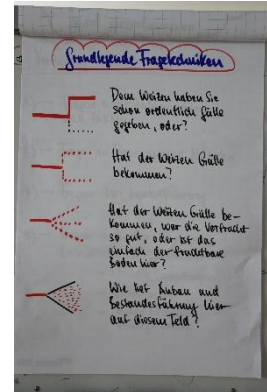 Grundlegende Fragetechniken
Dem Weizen haben Sie
schon ordentlich Gülle
gegeben, oder?
Hat der Weizen Gülle
bekommen?
Hat der Weizen Gülle be-
kommen, war die Vorfrucht
so gut, oder ist das
einfach der fruchtbare
Boden hier?
Wie lief Anbau und
Bestandesführung hier
auf diesem Feld?